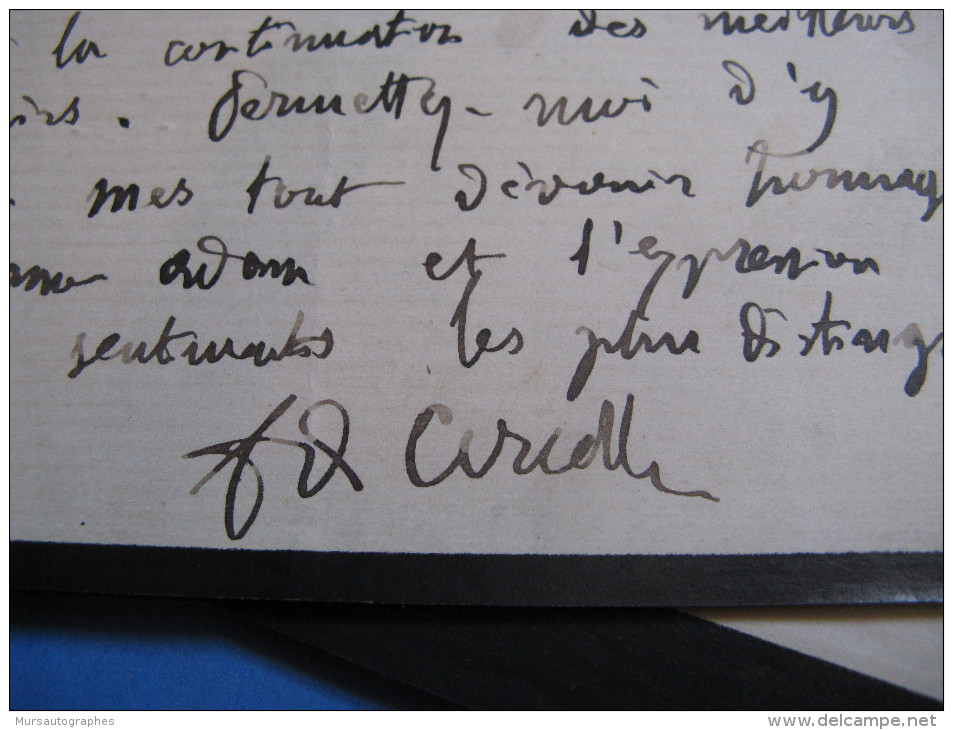 la continuation des meilleurs
irs. Permettez-moi d'y
mes tout dévoués hommag
et l'expression
sentiments les plus disting
Mursautographes
www.delcampe.net